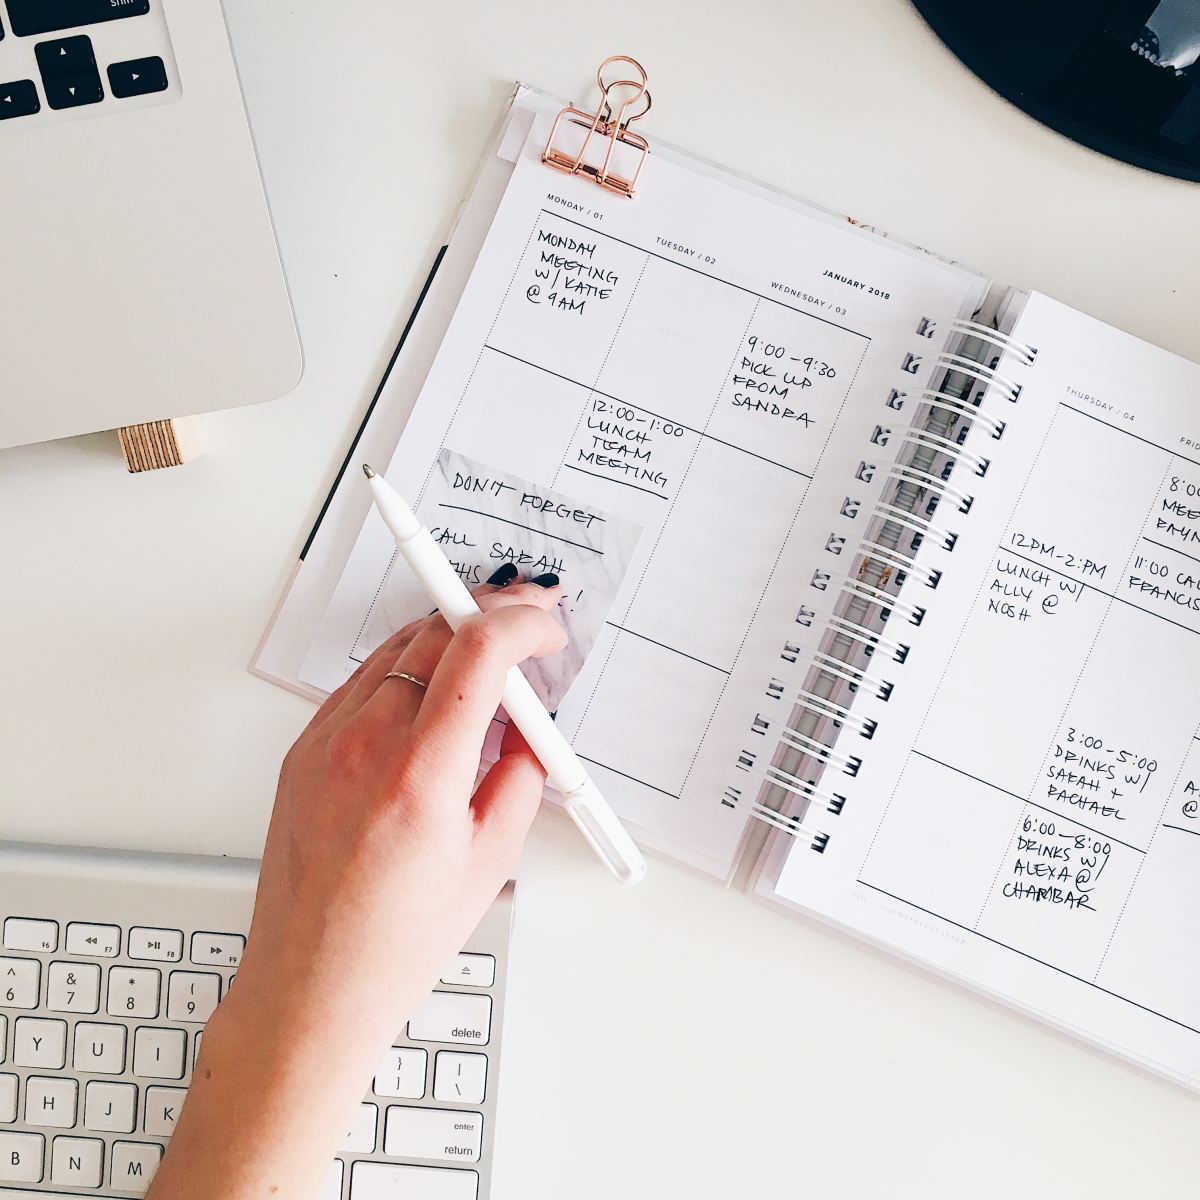 MONDAY / 01
MONDAY
MEETING
W/ KATIE
@ 9AM
TUESDAY / 02
12:00-1:00
LUNCH
TEAM
MEETING
JANUARY 2018
WEDNESDAY / 03
9:00-9:30
PICK UP
FROM
SANDRA
DON'T FORGET
CALL SARAH
!
THURSDAY / 04
12PM-2:PM
LUNCH W/
ALLY @
NOSH
3:00-5:00
DRINKS W/
SARAH +
RACHAEL
6:00-8:00
DRINKS W/
ALEXA @
CHAMBAR
8:0
11:00
@
2018 WEEKLY PLANNER
shift
F6
F7
F8
F9
^
6
&
7
*
8
(
9
delete
Y
U
I
}
]
|
\
H
J
K
enter
return
B
N
M